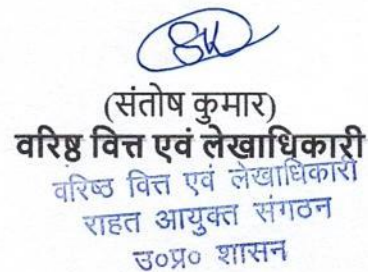 (संतोष कुमार)
वरिष्ठ वित्त एवं लेखाधिकारी
वरिष्ठ वित्त एवं लेखाधिकारी
राहत आयुक्त संगठन
उ०प्र० शासन